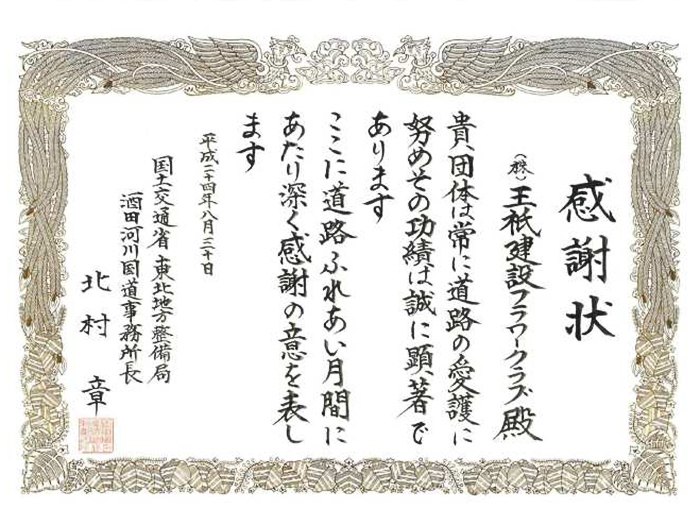 感謝状
(株)王祇建設フラワークラブ殿
貴団体は常に道路の愛護に
努めその功績は誠に顕著で
あります
ここに道路ふれあい月間に
あたり深く感謝の意を表し
ます
平成二十四年八月三十日
国土交通省東北地方整備局
酒田河川国道事務所長
北村 章